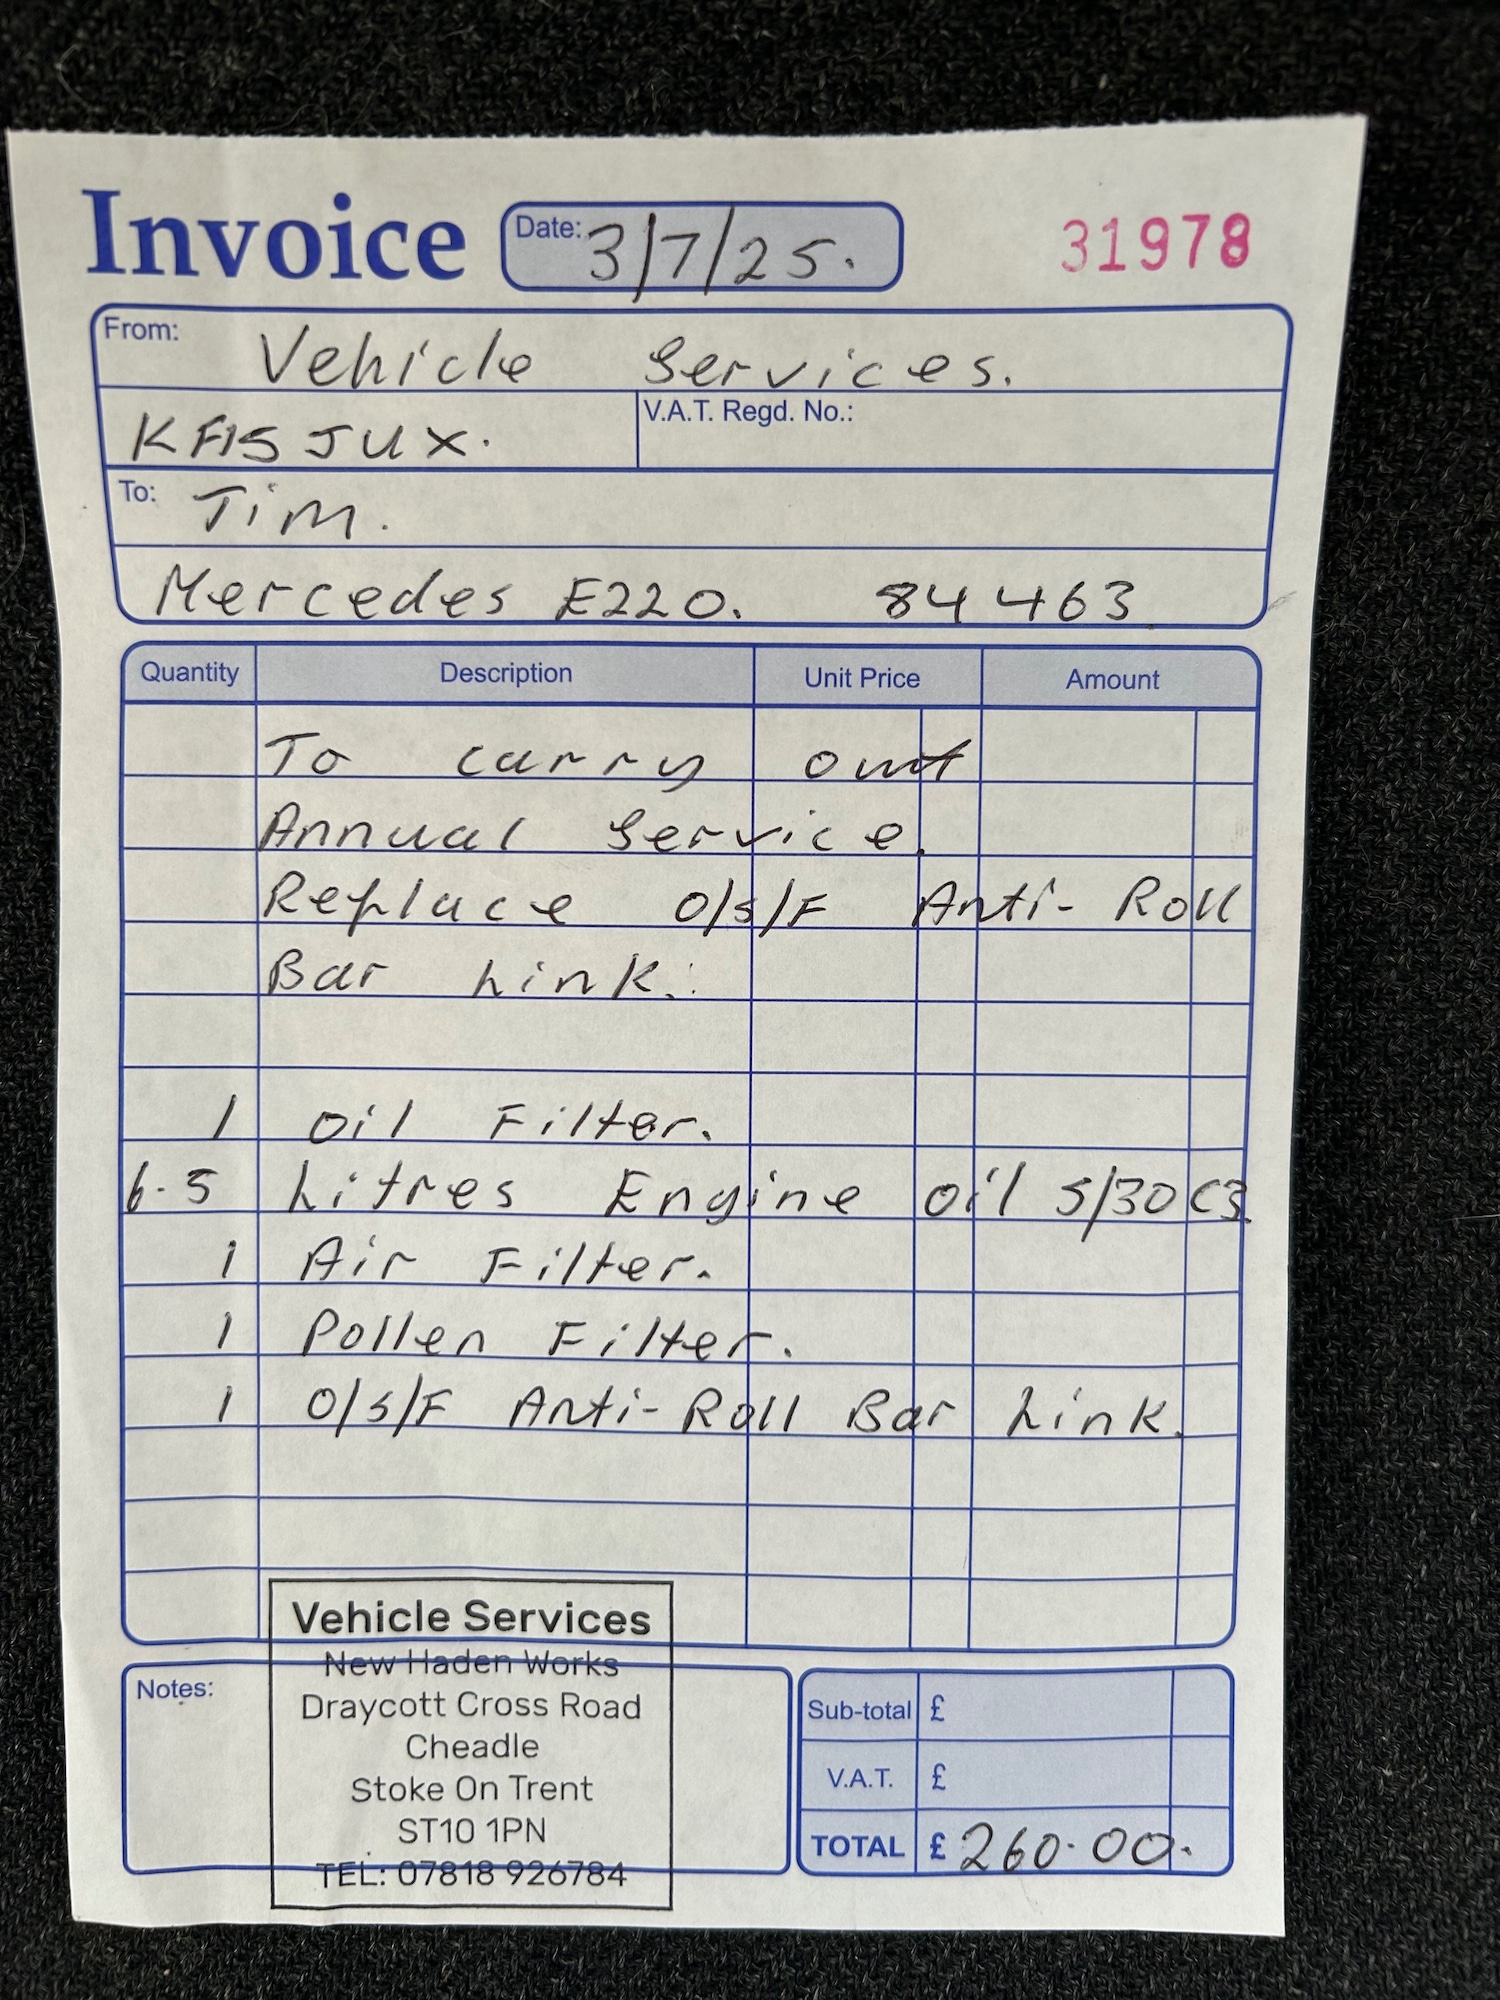 Invoice Date: 3/7/25. 31978
From: Vehicle Services.
KF15 JUX. V.A.T. Regd. No.:
To: Tim.
Mercedes E220. 84463
Quantity Description Unit Price Amount
To carry out
Annual Service.
Replace O/S/F Anti-Roll
Bar Link.
1 Oil Filter.
6.5 Litres Engine Oil 5/30 C3.
1 Air Filter.
1 Pollen Filter.
1 O/S/F Anti-Roll Bar Link.
Vehicle Services
New Haden Works
Draycott Cross Road
Cheadle
Stoke On Trent
ST10 1PN
TEL: 07818 926784
Notes:
Sub-total £
V.A.T. £
TOTAL £ 260.00.